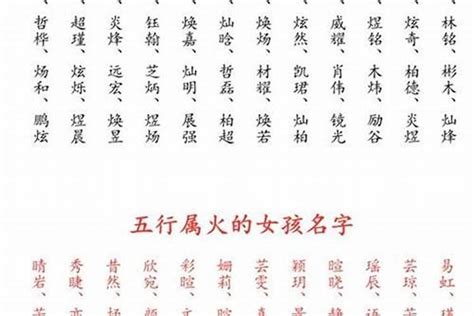 哲桦、炀和、鹏炫
超瑾、炫烁、煜晨
炎烽、远宏、焕昱
钰翰、芝炳、煜炀
焕嘉、灿明、展强
灿晗、哲磊、柏超
焕炀、材耀、焕若
炫然、凯珺、灿杰
威耀、肖伟、镜光
煜铭、木炜、励谷
炫奇、柏德、炎煜
林铭、彬木、灿烽
五行属火的女孩名字
晴岩、
秀睫、
昔然、
欣宛、
彩暄、
姗莉、
芸雯、
颖玥、
暄晓、
瑶辰、
芸琼、
易虹、